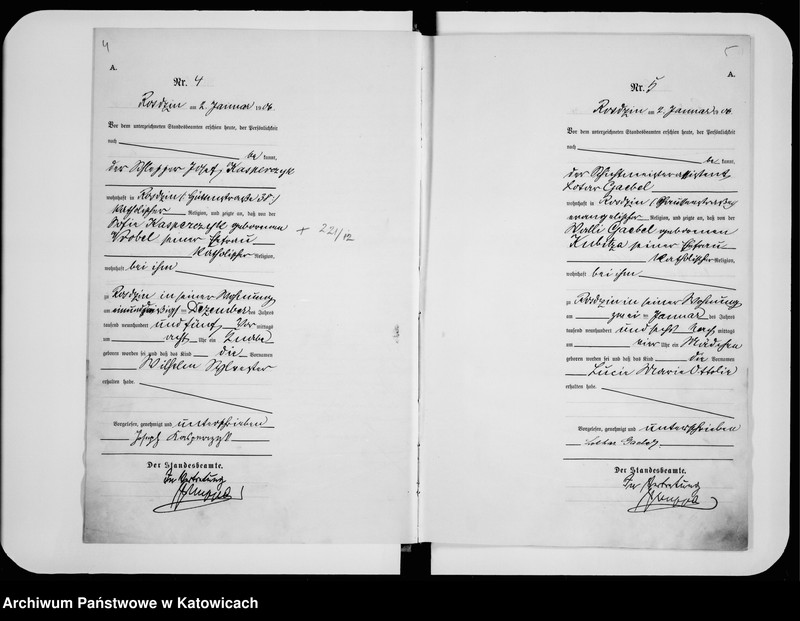 4
A.
Nr. 4
Rosdzin am 2. Januar 1906.
Vor dem unterzeichneten Standesbeamten erschien heute, der Persönlichkeit
nach be kannt,
der Schlepper Josef Kasperczyk
wohnhaft in Rosdzin
katholischer Religion, und zeigte an, daß von der
Sofie Kasperczyk geborenen
Wrobel seiner Ehefrau
katholischer Religion,
wohnhaft bei ihm
zu Rosdzin in seiner Wohnung
am einunddreißigsten Dezember des Jahres
tausend neunhundert und fünf Vor mittags
um acht Uhr ein Knabe
geboren worden sei und daß das Kind die Vornamen
Wilhelm Sylvester
erhalten habe.
Vorgelesen, genehmigt und unterschrieben
Joseph Kasperczyk
Der Standesbeamte.
In Vertretung
+ 221/12
5
A.
Nr. 5
Rosdzin am 2. Januar 1906.
Vor dem unterzeichneten Standesbeamten erschien heute, der Persönlichkeit
nach be kannt,
der Schichtmeisterassistent
Lotar Gaebel
wohnhaft in Rosdzin
evangelischer Religion, und zeigte an, daß von der
Walli Gaebel geborenen
Kubitza seiner Ehefrau
katholischer Religion,
wohnhaft bei ihm
zu Rosdzin in seiner Wohnung
am zwei ten Januar des Jahres
tausend neunhundert und sechs Nach mittags
um vier Uhr ein Mädchen
geboren worden sei und daß das Kind die Vornamen
Lucie Marie Ottilie
erhalten habe.
Vorgelesen, genehmigt und unterschrieben
Lothar Gaebel
Der Standesbeamte.
In Vertretung
Archiwum Państwowe w Katowicach